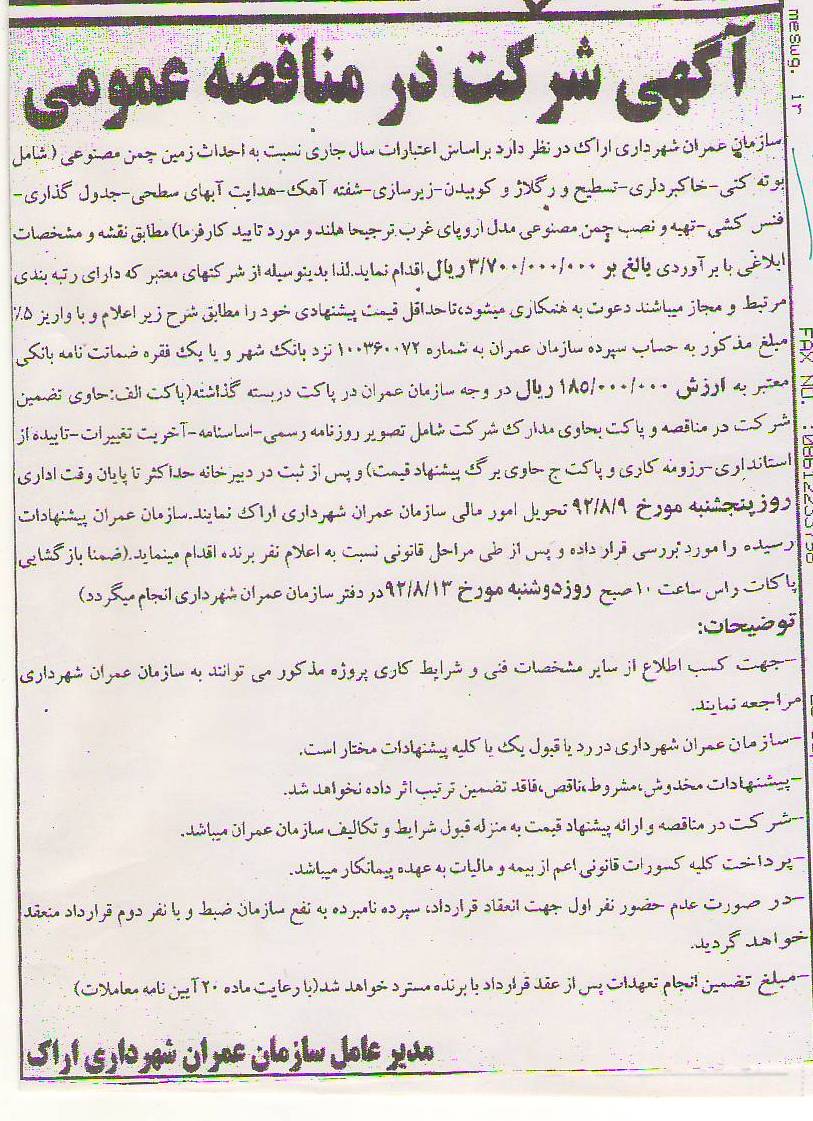 آگهی شرکت در مناقصه عمومی
سازمان عمران شهرداری اراک در نظر دارد براساس اعتبارات سال جاری نسبت به احداث زمین چمن مصنوعی (شامل
بوته کنی-خاکبرداری-تسطیح و رگلاژ و کوبیدن-زیرسازی-شفته آهک-هدایت آبهای سطحی-جدول گذاری-
فنس کشی-تهیه و نصب چمن مصنوعی مدل اروپای غرب ترجیحا هلند و مورد تایید کارفرما) مطابق نقشه و مشخصات
ابلاغی با برآوردی بالغ بر ۳/۷۰۰/۰۰۰/۰۰۰ ریال اقدام نماید.لذا بدینوسیله از شرکتهای معتبر که دارای رتبه بندی
مرتبط و مجاز میباشند دعوت به همکاری میشود،تا حداقل قیمت پیشنهادی خود را مطابق شرح زیر اعلام و با واریز ۵٪
مبلغ مذکور به حساب سپرده سازمان عمران به شماره ۱۰۰۳۶۰۰۷۲ نزد بانک شهر و یا یک فقره ضمانت نامه بانکی
معتبر به ارزش ۱۸۵/۰۰۰/۰۰۰ ریال در وجه سازمان عمران در پاکت دربسته گذاشته(پاکت الف:حاوی تضمین
شرکت در مناقصه و پاکت ب:حاوی مدارک شرکت شامل تصویر روزنامه رسمی-اساسنامه-آخریت تغییرات-تاییده از
استانداری-رزومه کاری و پاکت ج حاوی برگ پیشنهاد قیمت) و پس از ثبت در دبیرخانه حداکثر تا پایان وقت اداری
روز پنجشنبه مورخ ۹۲/۸/۹ تحویل امور مالی سازمان عمران شهرداری اراک نمایند.سازمان عمران پیشنهادات
رسیده را مورد بررسی قرار داده و پس از طی مراحل قانونی نسبت به اعلام نفر برنده اقدام مینماید.(ضمنا بازگشایی
پاکات راس ساعت ۱۰ صبح روز دوشنبه مورخ ۹۲/۸/۱۳ در دفتر سازمان عمران شهرداری انجام میگردد)
توضیحات:
-جهت کسب اطلاع از سایر مشخصات فنی و شرایط کاری پروژه مذکور می توانند به سازمان عمران شهرداری
مراجعه نمایند.
-سازمان عمران شهرداری در رد یا قبول یک یا کلیه پیشنهادات مختار است.
-پیشنهادات مخدوش،مشروط،ناقص،فاقد تضمین ترتیب اثر داده نخواهد شد.
-شرکت در مناقصه و ارائه پیشنهاد قیمت به منزله قبول شرایط و تکالیف سازمان عمران میباشد.
-پرداخت کلیه کسورات قانونی اعم از بیمه و مالیات به عهده پیمانکار میباشد.
-در صورت عدم حضور نفر اول جهت انعقاد قرارداد، سپرده نامبرده به نفع سازمان ضبط و با نفر دوم قرارداد منعقد
خواهد گردید.
-مبلغ تضمین انجام تعهدات پس از عقد قرارداد با برنده مسترد خواهد شد(با رعایت ماده ۲۰ آیین نامه معاملات)
مدیر عامل سازمان عمران شهرداری اراک
meswg. ir
FAX NO. :